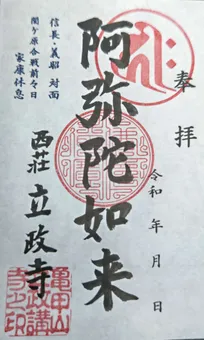 奉拝
令和 年 月 日
阿弥陀如来
西荘 立政寺
信長・義昭 対面
関ケ原合戦前々日
家康休息
亀甲山
政講
寺之印